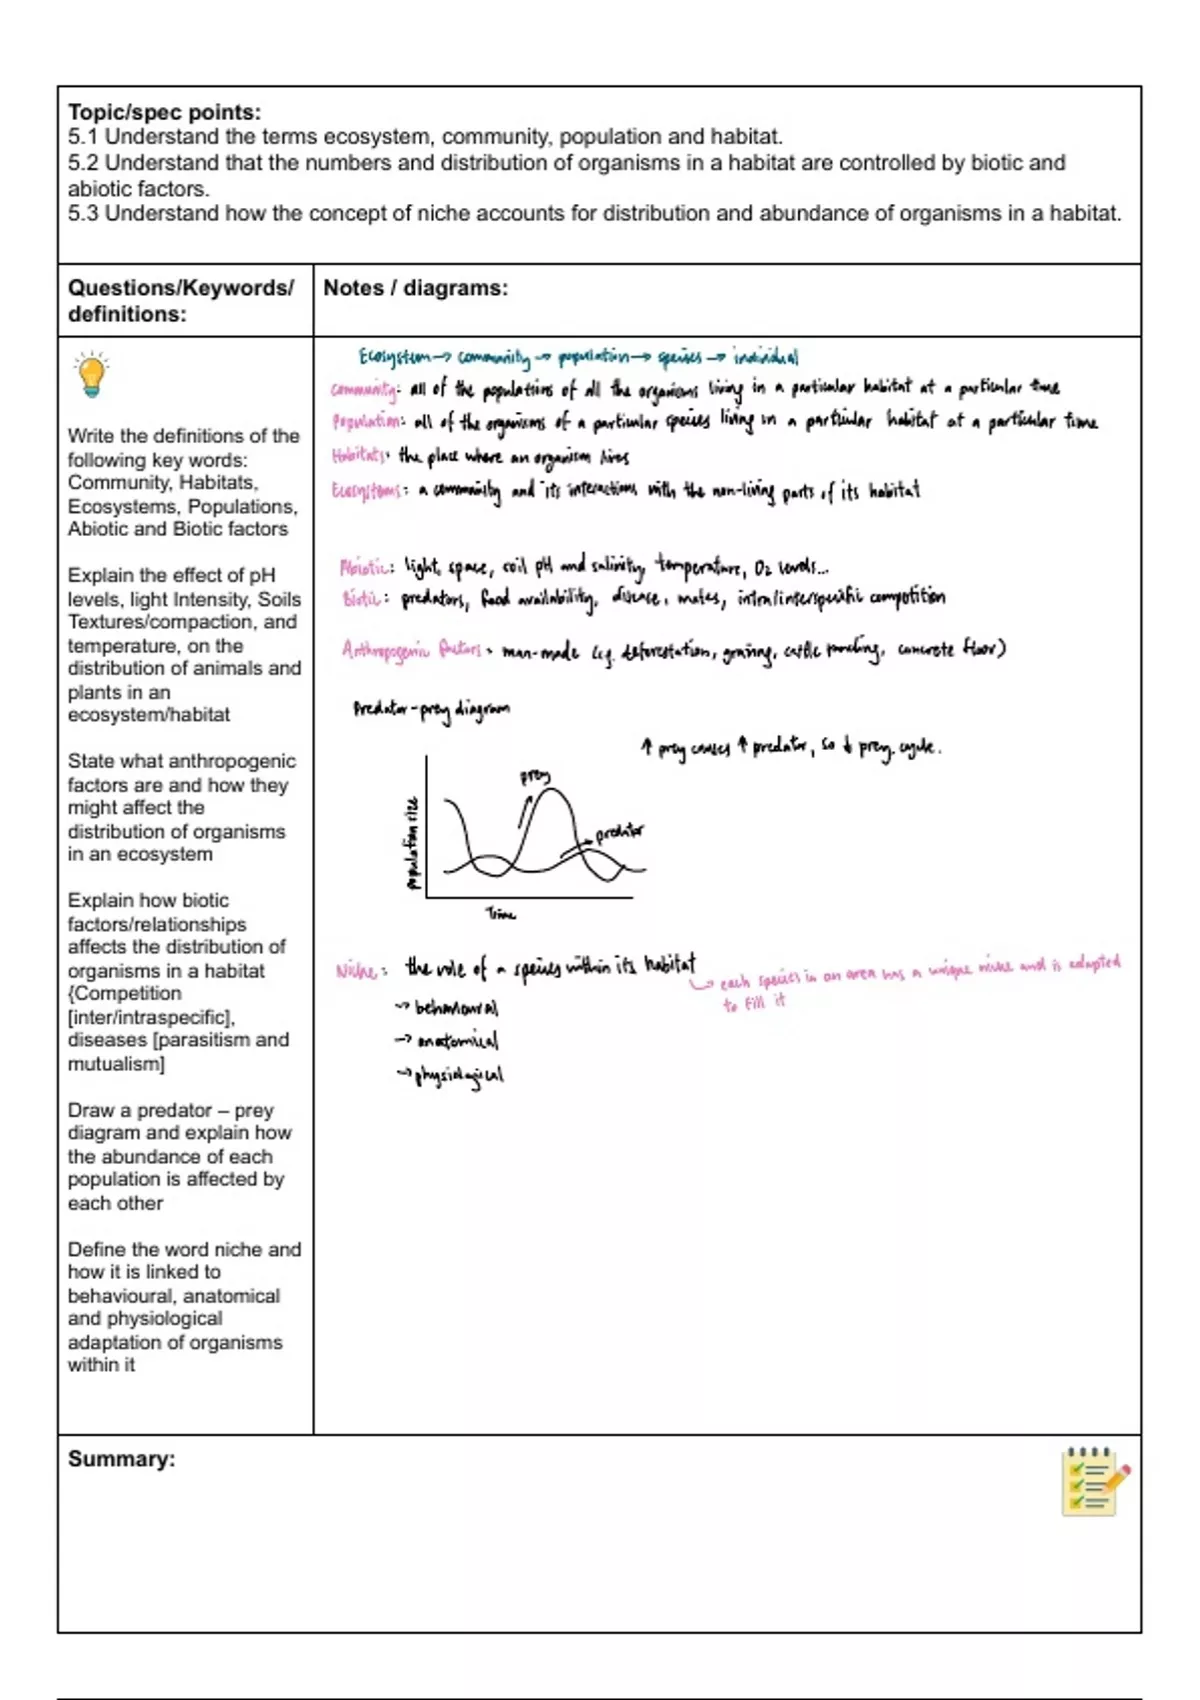 Topic/spec points:
5.1 Understand the terms ecosystem, community, population and habitat.
5.2 Understand that the numbers and distribution of organisms in a habitat are controlled by biotic and
abiotic factors.
5.3 Understand how the concept of niche accounts for distribution and abundance of organisms in a habitat.
Questions/Keywords/
definitions:
Notes / diagrams:
Write the definitions of the
following key words:
Community, Habitats,
Ecosystems, Populations,
Abiotic and Biotic factors
Explain the effect of pH
levels, light Intensity, Soils
Textures/compaction, and
temperature, on the
distribution of animals and
plants in an
ecosystem/habitat
State what anthropogenic
factors are and how they
might affect the
distribution of organisms
in an ecosystem
Explain how biotic
factors/relationships
affects the distribution of
organisms in a habitat
{Competition
[inter/intraspecific],
diseases [parasitism and
mutualism]
Draw a predator – prey
diagram and explain how
the abundance of each
population is affected by
each other
Define the word niche and
how it is linked to
behavioural, anatomical
and physiological
adaptation of organisms
within it
Ecosystem → community → population → species → individual
Community: all of the populations of all the organisms living in a particular habitat at a particular time
Population: all of the organisms of a particular species living in a particular habitat at a particular time
Habitats: the place where an organism lives
Ecosystems: a community and its interactions with the non-living parts of its habitat
Abiotic: light, space, soil pH and salinity, temperature, O2 levels...
Biotic: predators, food availability, disease, mates, intra/interspecific competition
Arthropogenic factors: man-made (eg. deforestation, grazing, cattle, concrete floor)
Predator-prey diagram
↑ prey causes ↑ predator, so ↓ prey. cycle.
prey
predator
population size
Time
Niche: the role of a species within its habitat
↳ each species in an area has a unique niche and is adapted
to fill it
→ behavioural
→ anatomical
→ physiological
Summary: